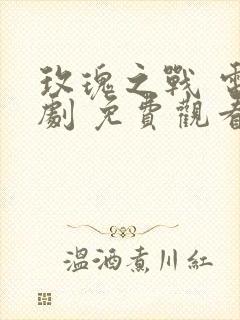 玫瑰之戰 電
劇 免費觀看
溫酒煮川紅